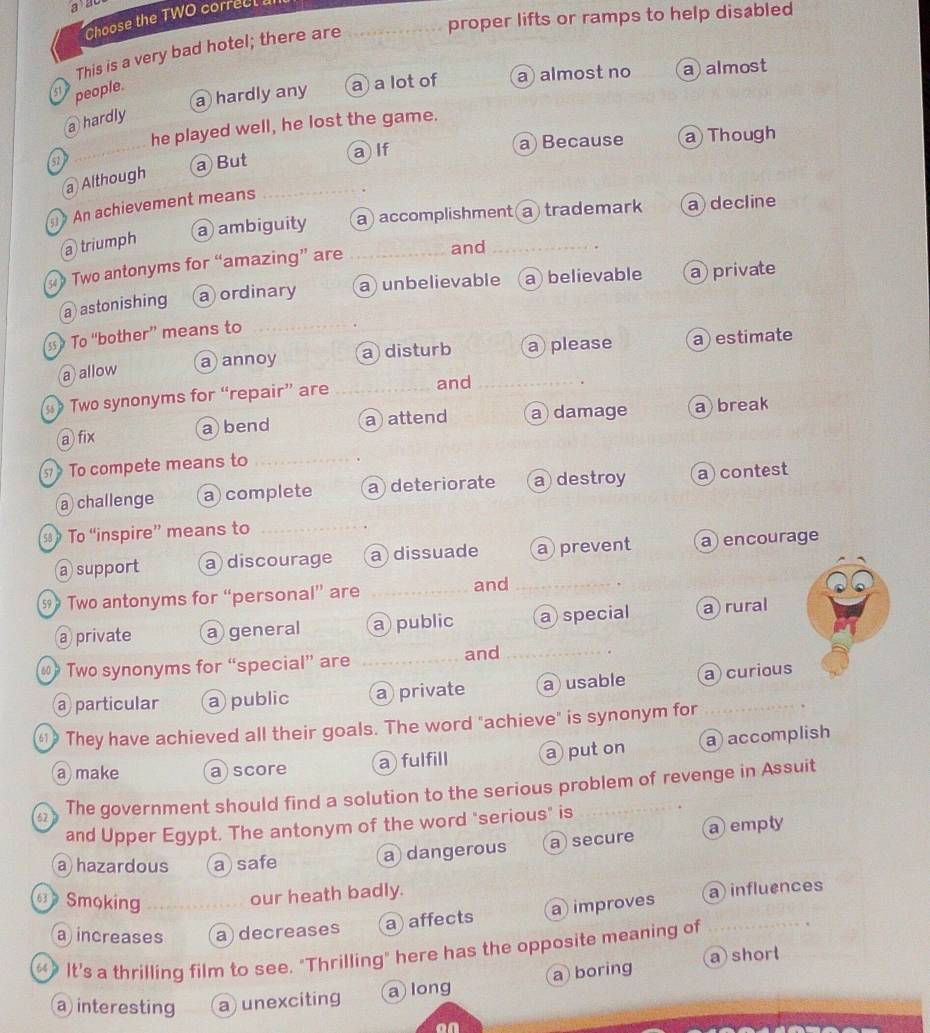 Choose the TWO correct
51 This is a very bad hotel; there are .............. proper lifts or ramps to help disabled
people.
a hardly a hardly any a a lot of a almost no a almost
52 .............. he played well, he lost the game.
a Although a But a If a Because a Though
53 An achievement means .............. .
a triumph a ambiguity a accomplishment a trademark a decline
54 Two antonyms for “amazing” are .............. and .............. .
a astonishing a ordinary a unbelievable a believable a private
55 To “bother” means to .............. .
a allow a annoy a disturb a please a estimate
56 Two synonyms for “repair” are .............. and .............. .
a fix a bend a attend a damage a break
57 To compete means to .............. .
a challenge a complete a deteriorate a destroy a contest
58 To “inspire” means to .............. .
a support a discourage a dissuade a prevent a encourage
59 Two antonyms for “personal” are .............. and .............. .
a private a general a public a special a rural
60 Two synonyms for “special” are .............. and .............. .
a particular a public a private a usable a curious
61 They have achieved all their goals. The word "achieve" is synonym for .............. .
a make a score a fulfill a put on a accomplish
62 The government should find a solution to the serious problem of revenge in Assuit
and Upper Egypt. The antonym of the word "serious" is .............. .
a hazardous a safe a dangerous a secure a empty
63 Smoking .............. our heath badly.
a increases a decreases a affects a improves a influences
64 It's a thrilling film to see. "Thrilling" here has the opposite meaning of .............. .
a interesting a unexciting a long a boring a short